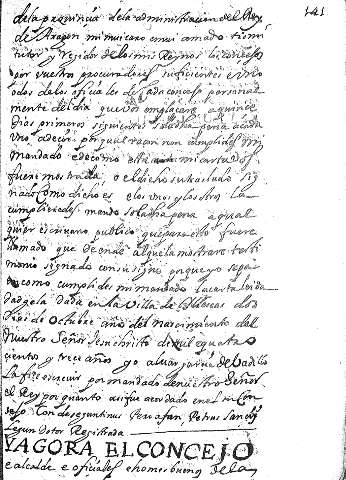 141
de la provincia de la administracion del Rey
de Aragon mi muy caro e muy amado tio mi
tutor y regidor de los mis Reynos los concejos
por vuestro procuradores suficientes e uno
o dos de los oficiales de cada concejo personal
mente del dia que vos emplaçare a quince
dias primeros siguientes so la dicha pena a cada
uno a decir por qual raçon non cumplides mi
mandado e de como esta mi carta vos
fuere mostrada o el dicho su traslado sig
nado como dicho es e los unos y los otros la
cumplieredes mando so la dicha pena a qual
quier escrivano publico que para esto fuere
llamado que de ende al que la mostrare testi
monio signado con su signo porque yo sepa
como cumplides mi mandado la carta leida
dadgela dada en la villa de dos
dias de Octubre año del nascimiento del
nuestro Señor Jesu christo de mil e quatro
cientos y trece años yo alvar garcia de Vadillo
la fize escrevir por mandado de nuestro Señor
el Rey por quanto assi fue acordado en el su Con
sejo
Registrada
Y AGORA EL CONCEJO
e alcalde e oficiales e homes buenos de la